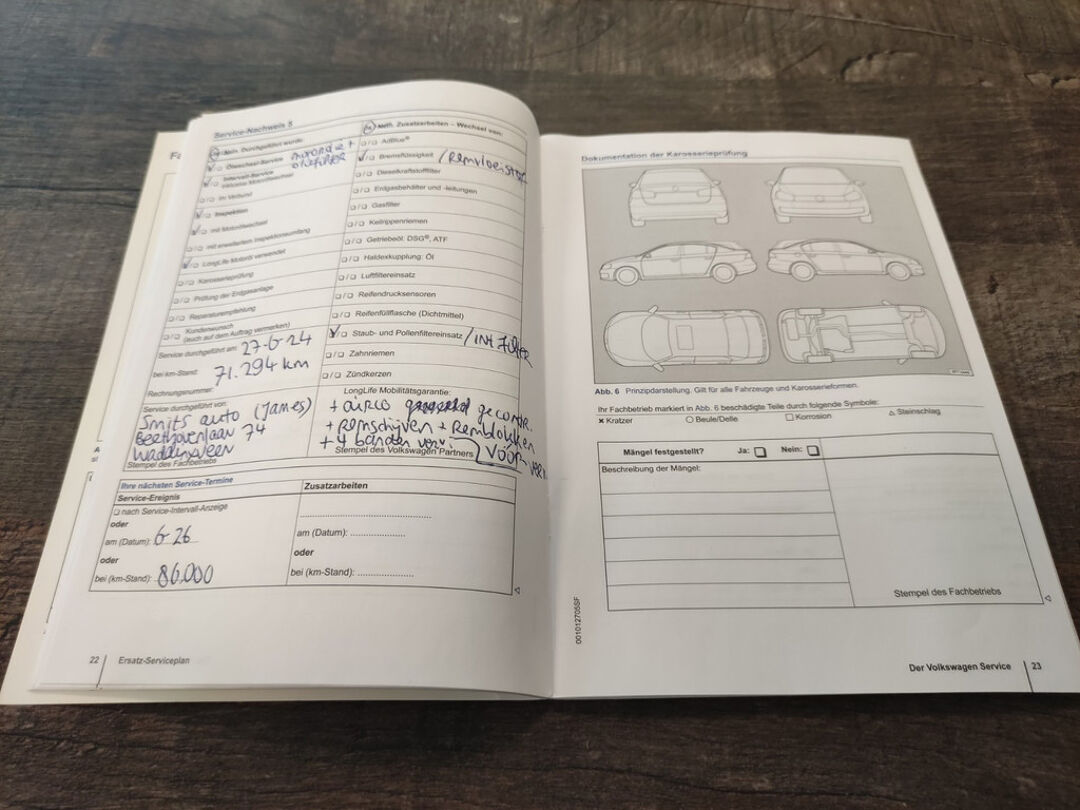 Service-Nachweis 5
Ja Nein Durchgeführt wurde:
Ölwechsel-Service motorolie + oliefilter
Intervall-Service
inklusive Motorölwechsel
Im Verbund
Inspektion
mit Motorölwechsel
mit erweitertem Inspektionsumfang
LongLife Motoröl verwendet
Karosserieprüfung
Prüfung der Erdgasanlage
Reparaturempfehlung
Kundenwunsch
(auch auf dem Auftrag vermerken)
Service durchgeführt am: 27-6-24
bei km-Stand: 71.294 km
Rechnungsnummer:
Service durchgeführt von:
Smits auto (James)
Beethovenlaan 74
Waddinxveen
Stempel des Fachbetriebs
Ja Nein Zusatzarbeiten – Wechsel von:
AdBlue®
Bremsflüssigkeit / Remvloeistof
Dieselkraftstofffilter
Erdgasbehälter und -leitungen
Gasfilter
Keilrippenriemen
Getriebeöl: DSG®, ATF
Haldexkupplung: Öl
Luftfiltereinsatz
Reifendrucksensoren
Reifenfüllflasche (Dichtmittel)
Staub- und Pollenfiltereinsatz / int Filter
Zahnriemen
Zündkerzen
LongLife Mobilitätsgarantie:
+ airco
+ Remschijven + Remblokken
+ 4 banden
Stempel des Volkswagen Partners
Ihre nächsten Service-Termine
Service-Ereignis
nach Service-Intervall-Anzeige
oder
am (Datum): 6-26
oder
bei (km-Stand): 86.000
Zusatzarbeiten
am (Datum):
oder
bei (km-Stand):
22 Ersatz-Serviceplan
Dokumentation der Karosserieprüfung
Abb. 6 Prinzipdarstellung. Gilt für alle Fahrzeuge und Karosserieformen.
Ihr Fachbetrieb markiert in Abb. 6 beschädigte Teile durch folgende Symbole:
Kratzer Beule/Delle Korrosion Steinschlag
Mängel festgestellt? Ja: Nein:
Beschreibung der Mängel:
Stempel des Fachbetriebs
001012705SF
Der Volkswagen Service 23